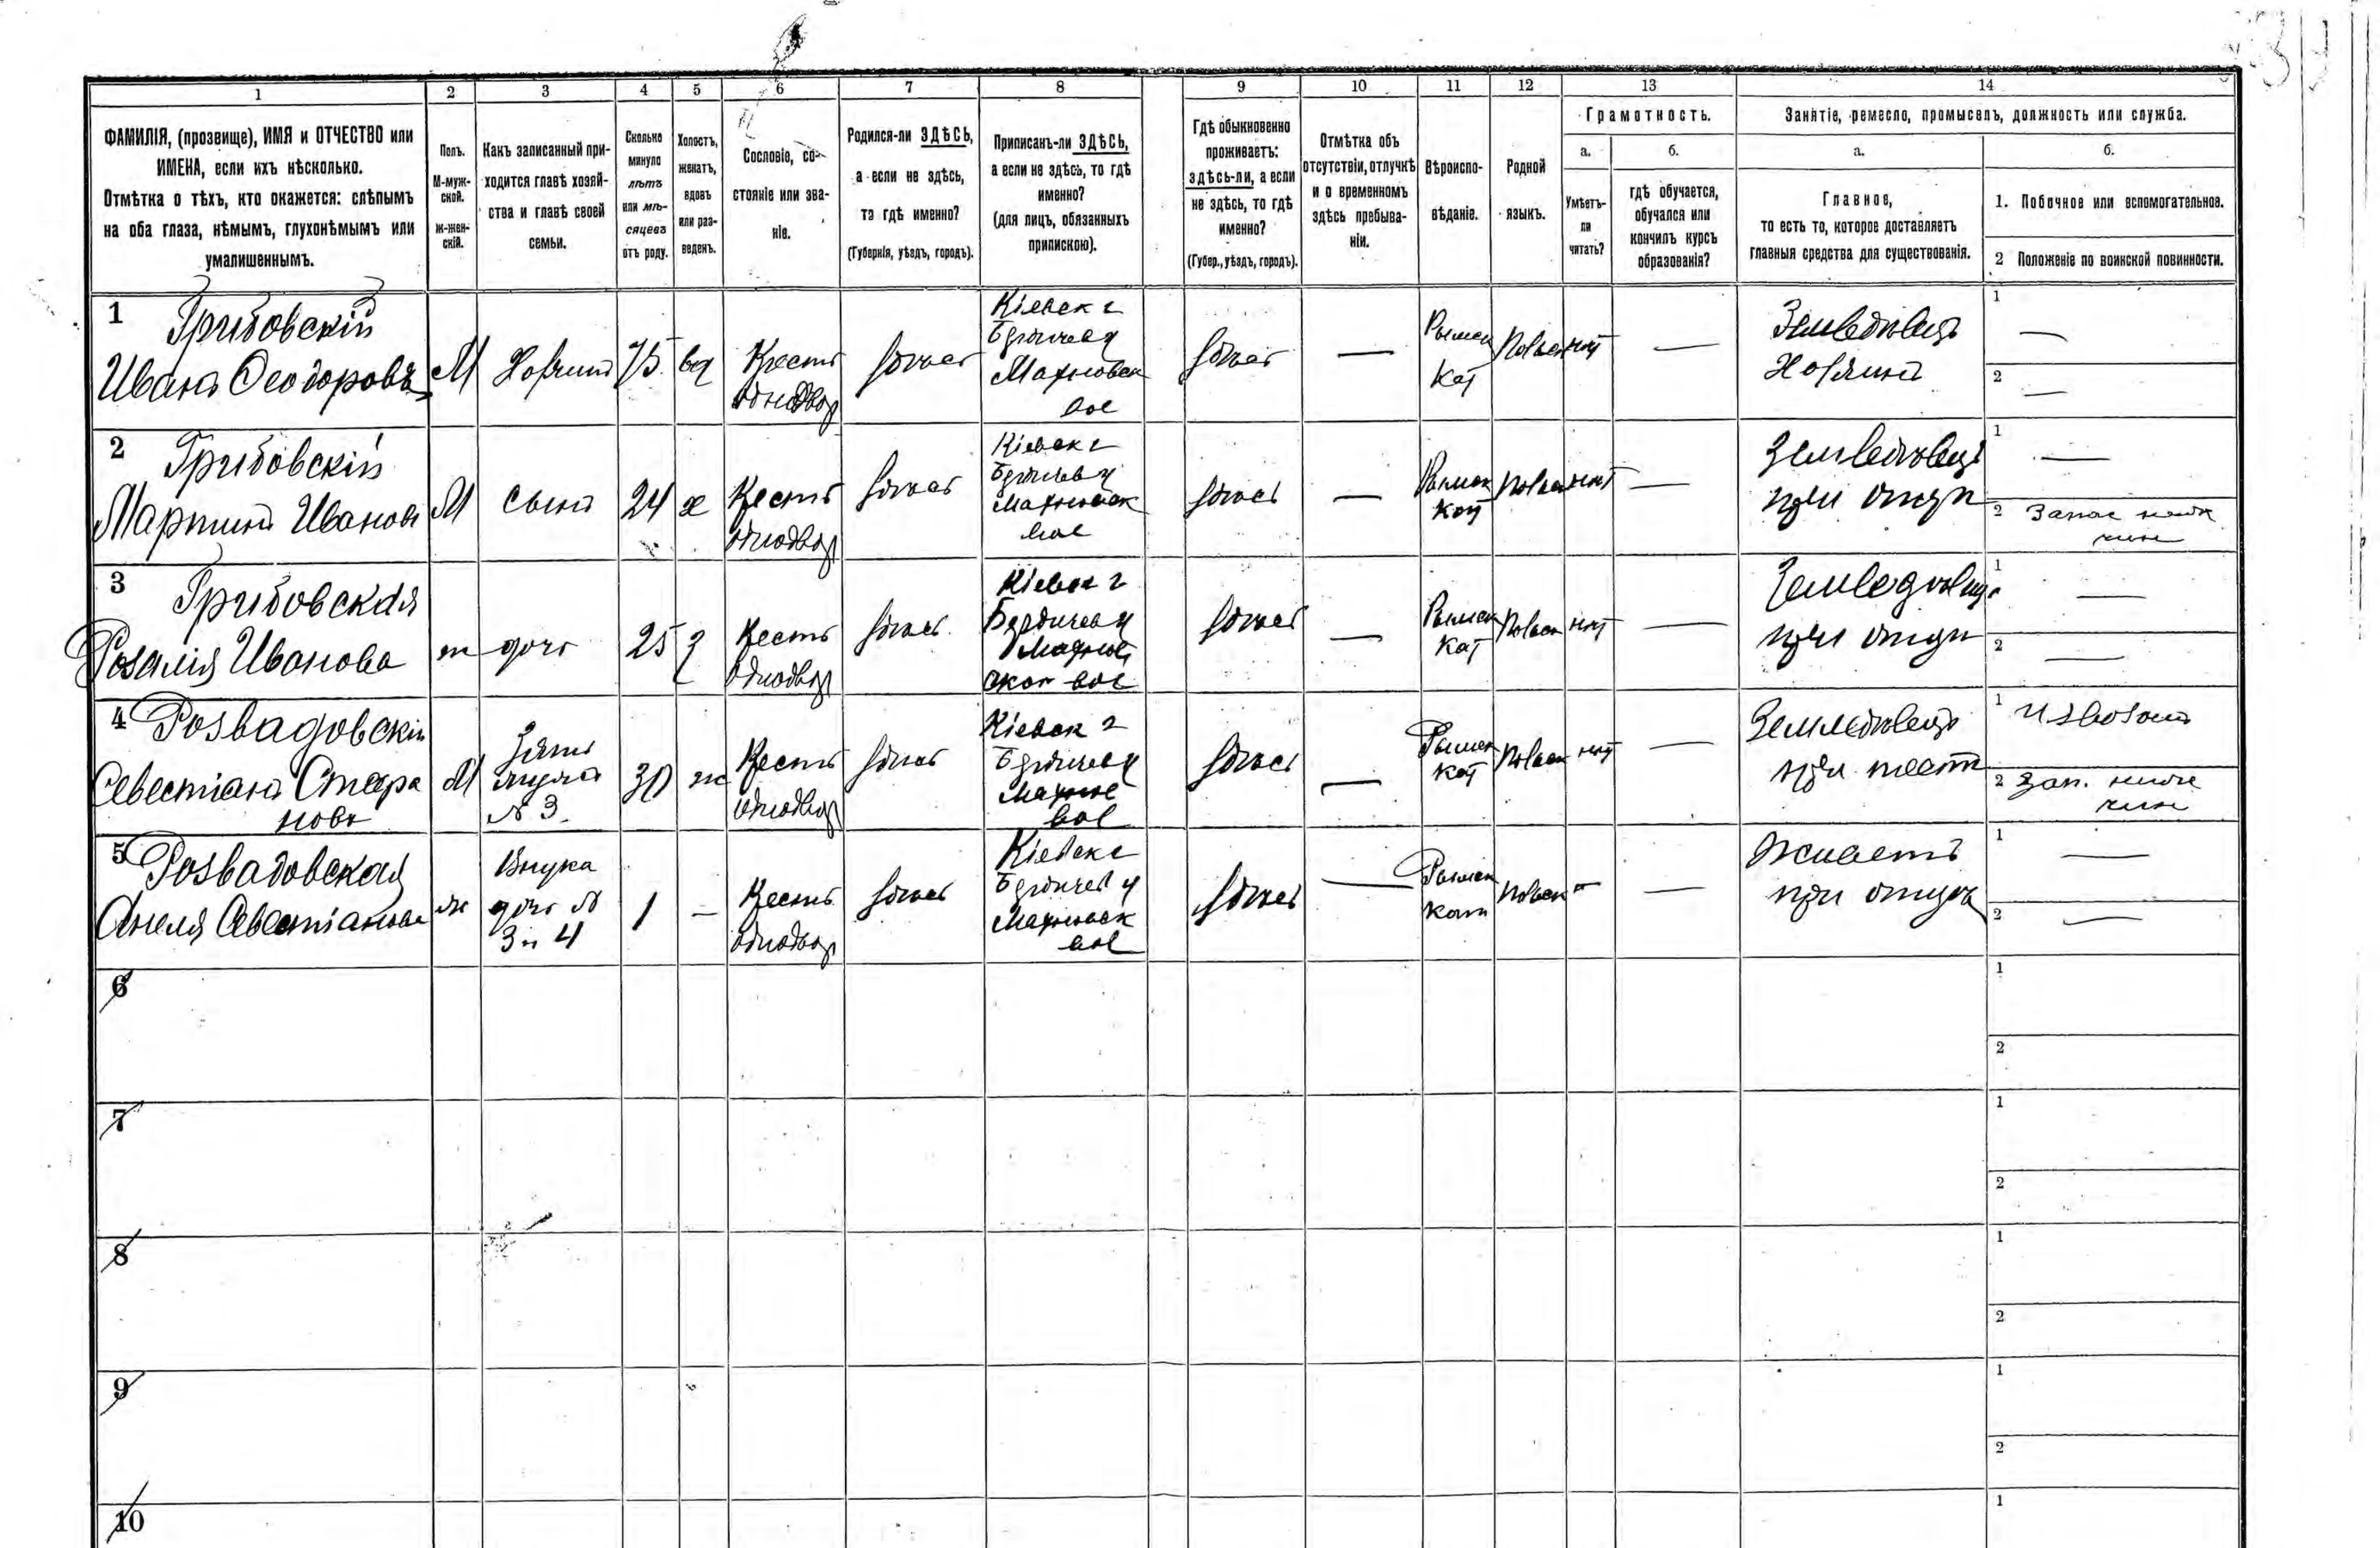 1
2
3
4
5
6
7
8
9
10
11
12
13
14
ФАМИЛІЯ, (прозвище), ИМЯ и ОТЧЕСТВО или
ИМЕНА, если ихъ нѣсколько.
Отмѣтка о тѣхъ, кто окажется: слѣпымъ
на оба глаза, нѣмымъ, глухонѣмымъ или
умалишеннымъ.
Полъ.
М-муж-
ской.
Ж-жен-
скій.
Какъ записанный при-
ходится главѣ хозяй-
ства и главѣ своей
семьи.
Сколько
минуло
лѣтъ
или мѣ-
сяцевъ
отъ роду.
Холостъ,
женатъ,
вдовъ
или раз-
веденъ.
Сословіе, со-
стояніе или зва-
ніе.
Родился-ли ЗДѢСЬ,
а если не здѣсь,
то гдѣ именно?
(Губернія, уѣздъ, городъ).
Приписанъ-ли ЗДѢСЬ,
а если не здѣсь, то гдѣ
именно?
(для лицъ, обязанныхъ
припискою).
Гдѣ обыкновенно
проживаетъ:
здѣсь-ли, а если
не здѣсь, то гдѣ
именно?
(Губер., уѣздъ, городъ).
Отмѣтка объ
отсутствіи, отлучкѣ
и о временномъ
здѣсь пребыва-
ніи.
Вѣроиспо-
вѣданіе.
Родной
языкъ.
Грамотность.
а.
Умѣетъ-
ли
читать?
б.
гдѣ обучается,
обучался или
кончилъ курсъ
образованія?
Занятіе, ремесло, промыселъ, должность или служба.
а.
Главное,
то есть то, которое доставляетъ
главныя средства для существованія.
б.
1. Побочное или вспомогательное.
2 Положеніе по воинской повинности.
1 Грибовскій
Иванъ Ѳеодоровъ
М
75
вд
Крест
однодвор
здѣсь
Кіевск г
Бердичев у
Махновск
вол
здѣсь
—
Римск
кат
Польск
нѣт
—
Земледѣлецъ
Хозяинъ
1 —
2 —
2 Грибовскій
Мартинъ Иванов
М
сынъ
24
х
Крест
однодвор
здѣсь
Кіевск г
Бердичев у
Махновск
вол
здѣсь
—
Римск
кат
Польск
нѣт
—
Земледѣлецъ
при отцѣ
1 —
2 Запас нижн
чин
3 Грибовская
Розалія Иванова
ж
дочь
25
з
Крест
однодвор
здѣсь
Кіевск г
Бердичев у
Махнов
ской вол
здѣсь
—
Римск
кат
Польск
нѣт
—
при отцѣ
1 —
2 —
4 Розвадовскій
Севестіанъ Стефа
новъ
М
Зять
мужъ
№ 3
30
ж
Крест
однодвор
здѣсь
Кіевск г
Бердичев у
Махнов
вол
здѣсь
—
Римск
кат
Польск
нѣт
—
Земледѣлецъ
при тестѣ
1 Извозъ
2 Зап. нижн
чин
5 Розвадовская
Анеля Севестіанова
ж
Внука
дочь №
3 и 4
1
—
Крест
однодвор
здѣсь
Кіевск г
Бердичев у
Махновск
вол
здѣсь
—
Римск
кат
Польск
—
—
Живетъ
при отцѣ
1 —
2 —
6
1
2
7
1
2
8
1
2
9
1
2
10
1